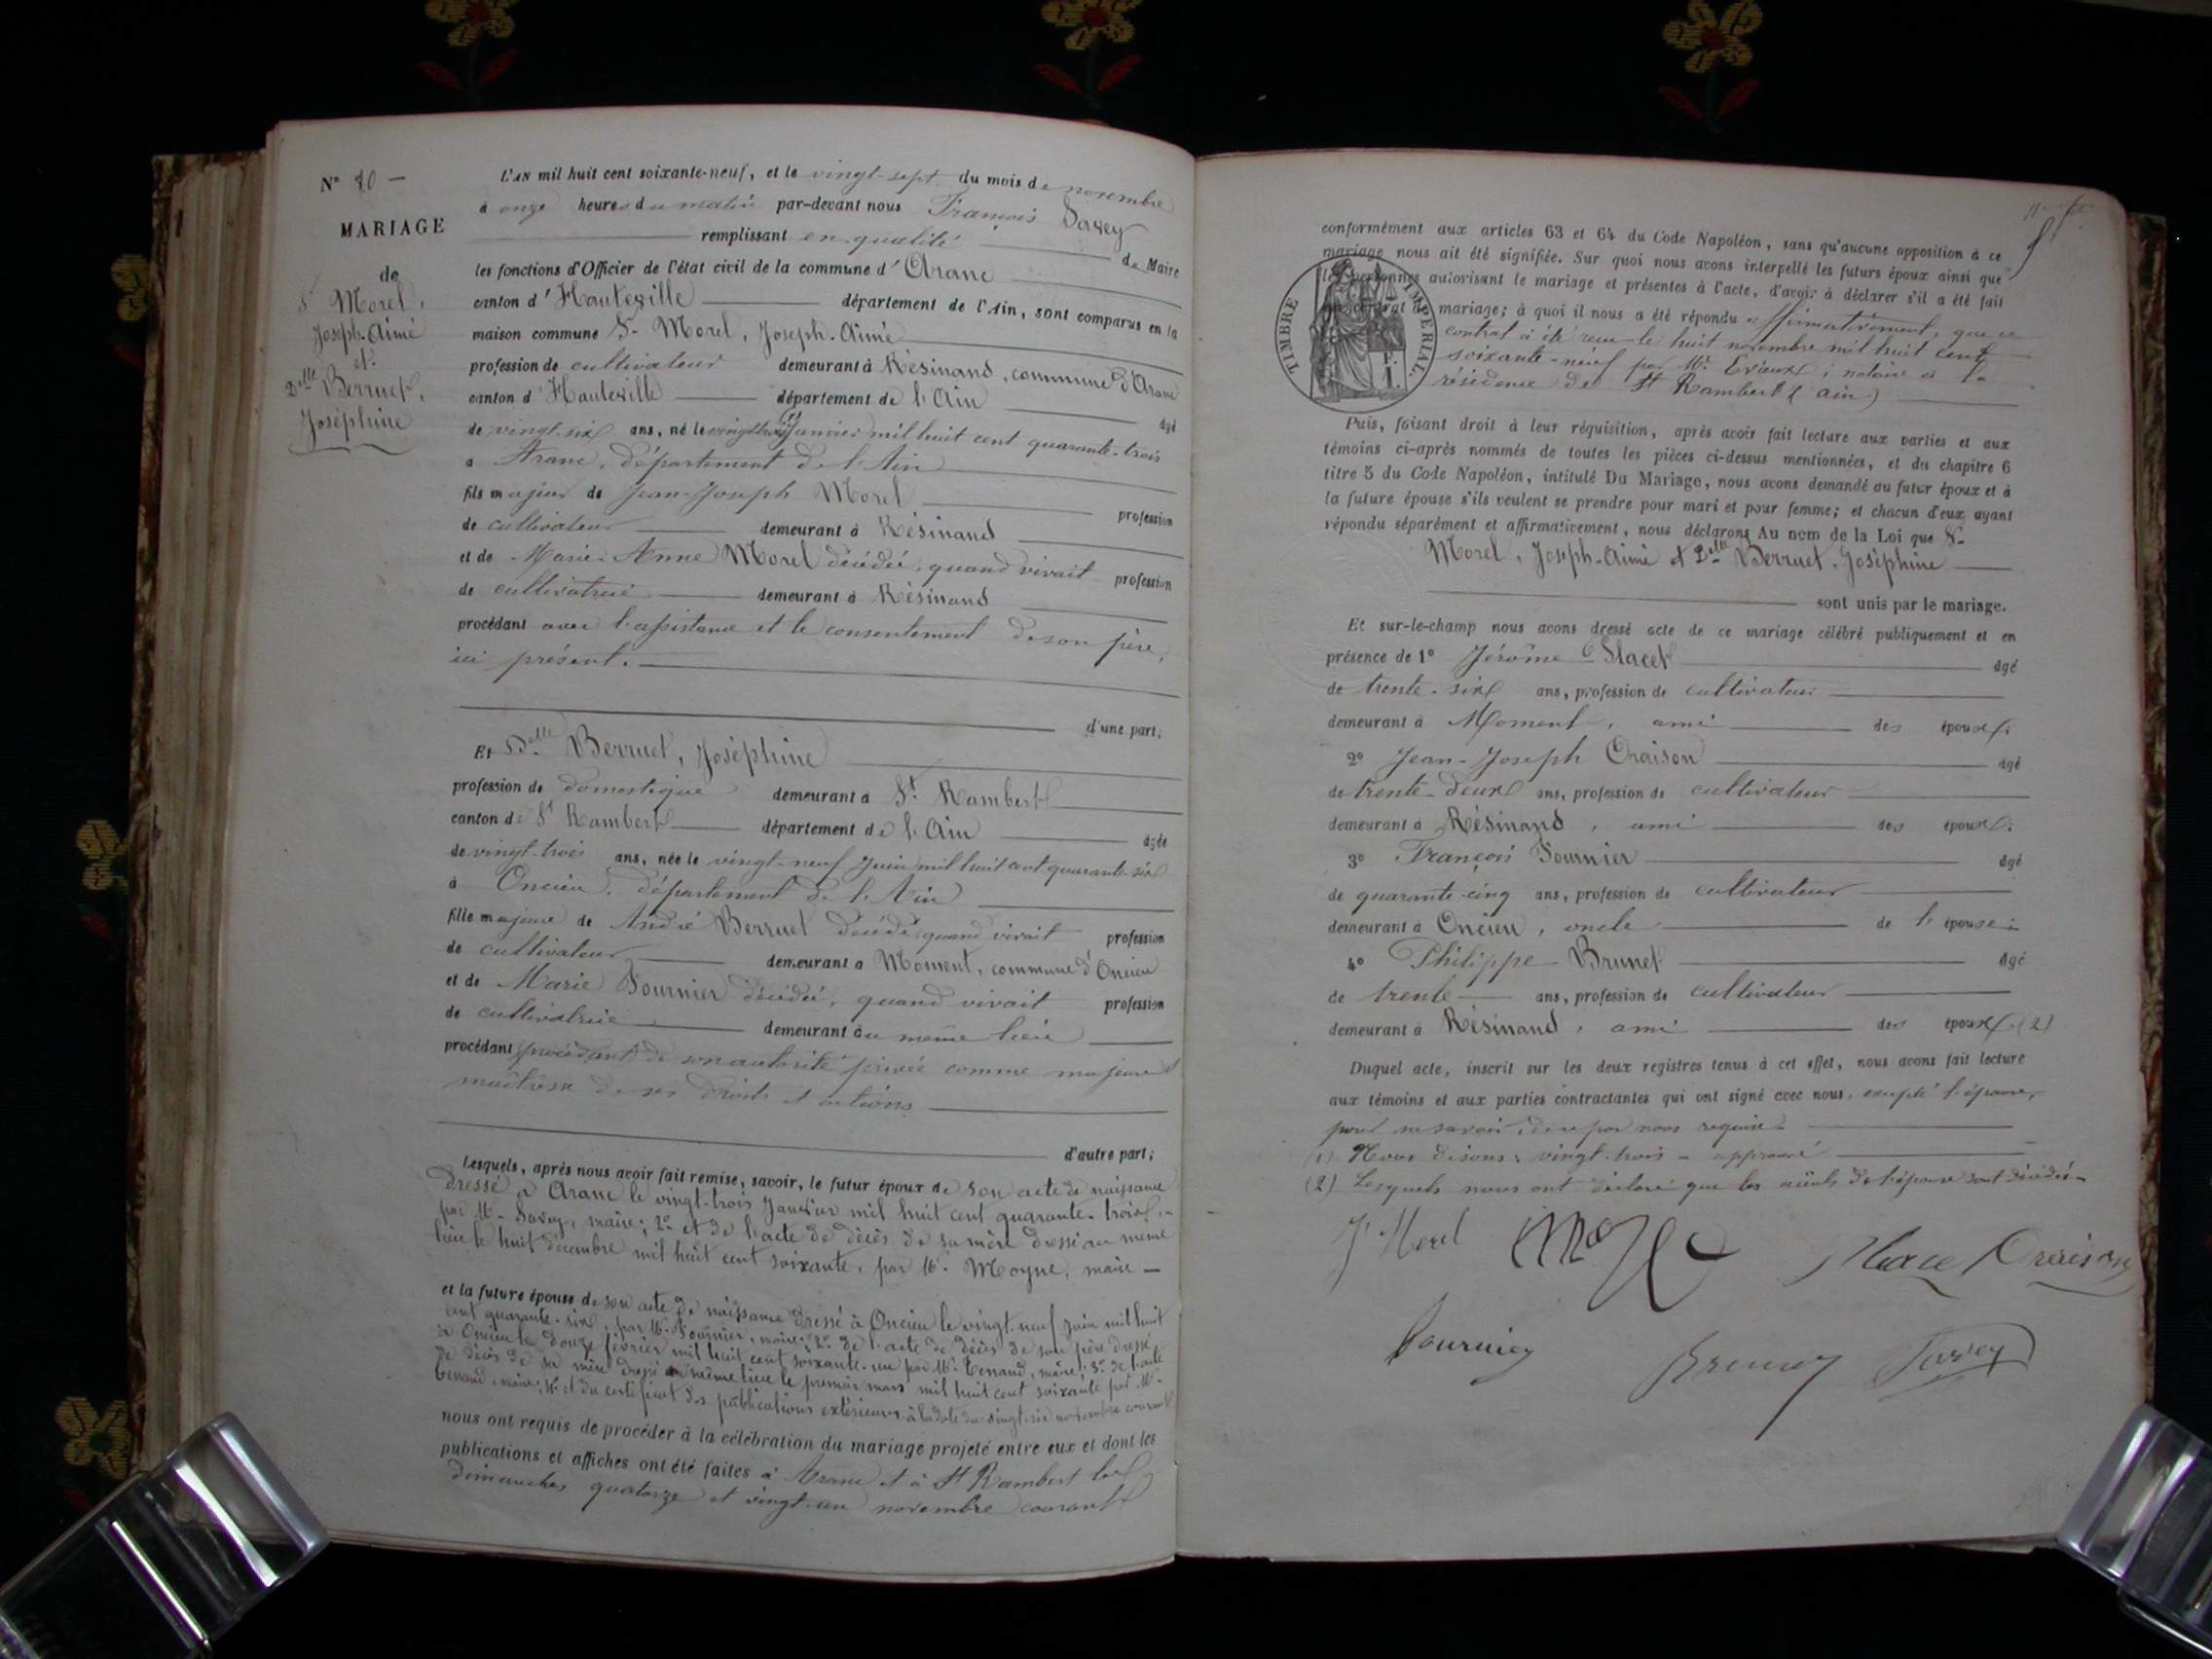 N° 10 —
MARIAGE
de
Sr Morel,
Joseph-Aimé
et
Delle Berruet,
Joséphine
L'AN mil huit cent soixante-neuf, et le vingt-sept du mois de novembre
à onze heures du matin par-devant nous François Savey
remplissant en qualité de Maire
les fonctions d'Officier de l'état civil de la commune d'Aranc
canton d'Hauteville département de l'Ain, sont comparus en la
maison commune Sr Morel, Joseph-Aimé
profession de cultivateur demeurant à Résinand, commune d'Aranc
canton d'Hauteville département de l'Ain âgé
de vingt-six ans, né le vingt trois (1) Janvier mil huit cent quarante-trois
à Aranc, département de l'Ain
fils majeur de Jean-Joseph Morel profession
de cultivateur demeurant à Résinand
et de Marie-Anne Morel décédée, quand vivait profession
de cultivatrice demeurant à Résinand
procédant avec l'assistance et le consentement de son père,
ici présent.
d'une part;
Et Delle Berruet, Joséphine
profession de domestique demeurant à St Rambert
canton de St Rambert département de l'Ain âgée
de vingt-trois ans, née le vingt-neuf Juin mil huit cent quarante-six
à Oncieu, département de l'Ain
fille majeure de André Berruet décédé, quand vivait profession
de cultivateur demeurant à Moment, commune d'Oncieu
et de Marie Fournier décédée, quand vivait profession
de cultivatrice demeurant au même lieu
procédant procédant de son autorité privée comme majeure
maîtresse de ses droits et actions
d'autre part;
Lesquels, après nous avoir fait remise, savoir, le futur époux de son acte de naissance
dressé à Aranc le vingt-trois Janvier mil huit cent quarante-trois
par Mr Savey, maire; 2° et de l'acte de décès de sa mère dressé au même
lieu le huit décembre mil huit cent soixante, par Mr Moyne, maire —
et la future épouse de son acte de naissance dressé à Oncieu le vingt-neuf juin mil huit
cent quarante-six, par Mr Fournier, maire; 2° de l'acte de décès de son père dressé
à Oncieu le douze février mil huit cent soixante-un par Mr Tenand, maire; 3° de l'acte
de décès de sa mère dressé au même lieu le premier mars mil huit cent soixante par Mr
Tenand, maire; 4° et du certificat des publications extérieures à la date du vingt-six novembre courant
nous ont requis de procéder à la célébration du mariage projeté entre eux et dont les
publications et affiches ont été faites à Aranc et à St Rambert les
dimanches quatorze et vingt-un novembre courant
conformément aux articles 63 et 64 du Code Napoléon, sans qu'aucune opposition à ce
mariage nous ait été signifiée. Sur quoi nous avons interpellé les futurs époux ainsi que
les personnes autorisant le mariage et présentes à l'acte, d'avoir à déclarer s'il a été fait
un contrat de mariage; à quoi il nous a été répondu affirmativement, que ce
contrat a été reçu le huit novembre mil huit cent
soixante-neuf par Mr Evieux, notaire à la
résidence de St Rambert (ain)
TIMBRE IMPERIAL.
Puis, faisant droit à leur réquisition, après avoir fait lecture aux parties et aux
témoins ci-après nommés de toutes les pièces ci-dessus mentionnées, et du chapitre 6
titre 5 du Code Napoléon, intitulé Du Mariage, nous avons demandé au futur époux et à
la future épouse s'ils veulent se prendre pour mari et pour femme; et chacun d'eux ayant
répondu séparément et affirmativement, nous déclarons Au nom de la Loi que Sr
Morel, Joseph-Aimé et Delle Berruet, Joséphine
sont unis par le mariage.
Et sur-le-champ nous avons dressé acte de ce mariage célébré publiquement et en
présence de 1° Jérôme Placet âgé
de trente-six ans, profession de cultivateur
demeurant à Moment, ami des époux;
2° Jean-Joseph Oraison âgé
de trente-deux ans, profession de cultivateur
demeurant à Résinand, ami des époux;
3° François Fournier âgé
de quarante-cinq ans, profession de cultivateur
demeurant à Oncieu, oncle de l'épouse;
4° Philippe Brunet âgé
de trente ans, profession de cultivateur
demeurant à Résinand, ami des époux. (2)
Duquel acte, inscrit sur les deux registres tenus à cet effet, nous avons fait lecture
aux témoins et aux parties contractantes qui ont signé avec nous, excepté l'épouse,
pour ne savoir, de ce par nous requise.
(1) Nous disons: vingt-trois — approuvé
(2) Lesquels nous ont déclaré que les aïeuls de l'épouse sont décédés —
J. Morel Placet Oraison
Fournier Brunet Savey